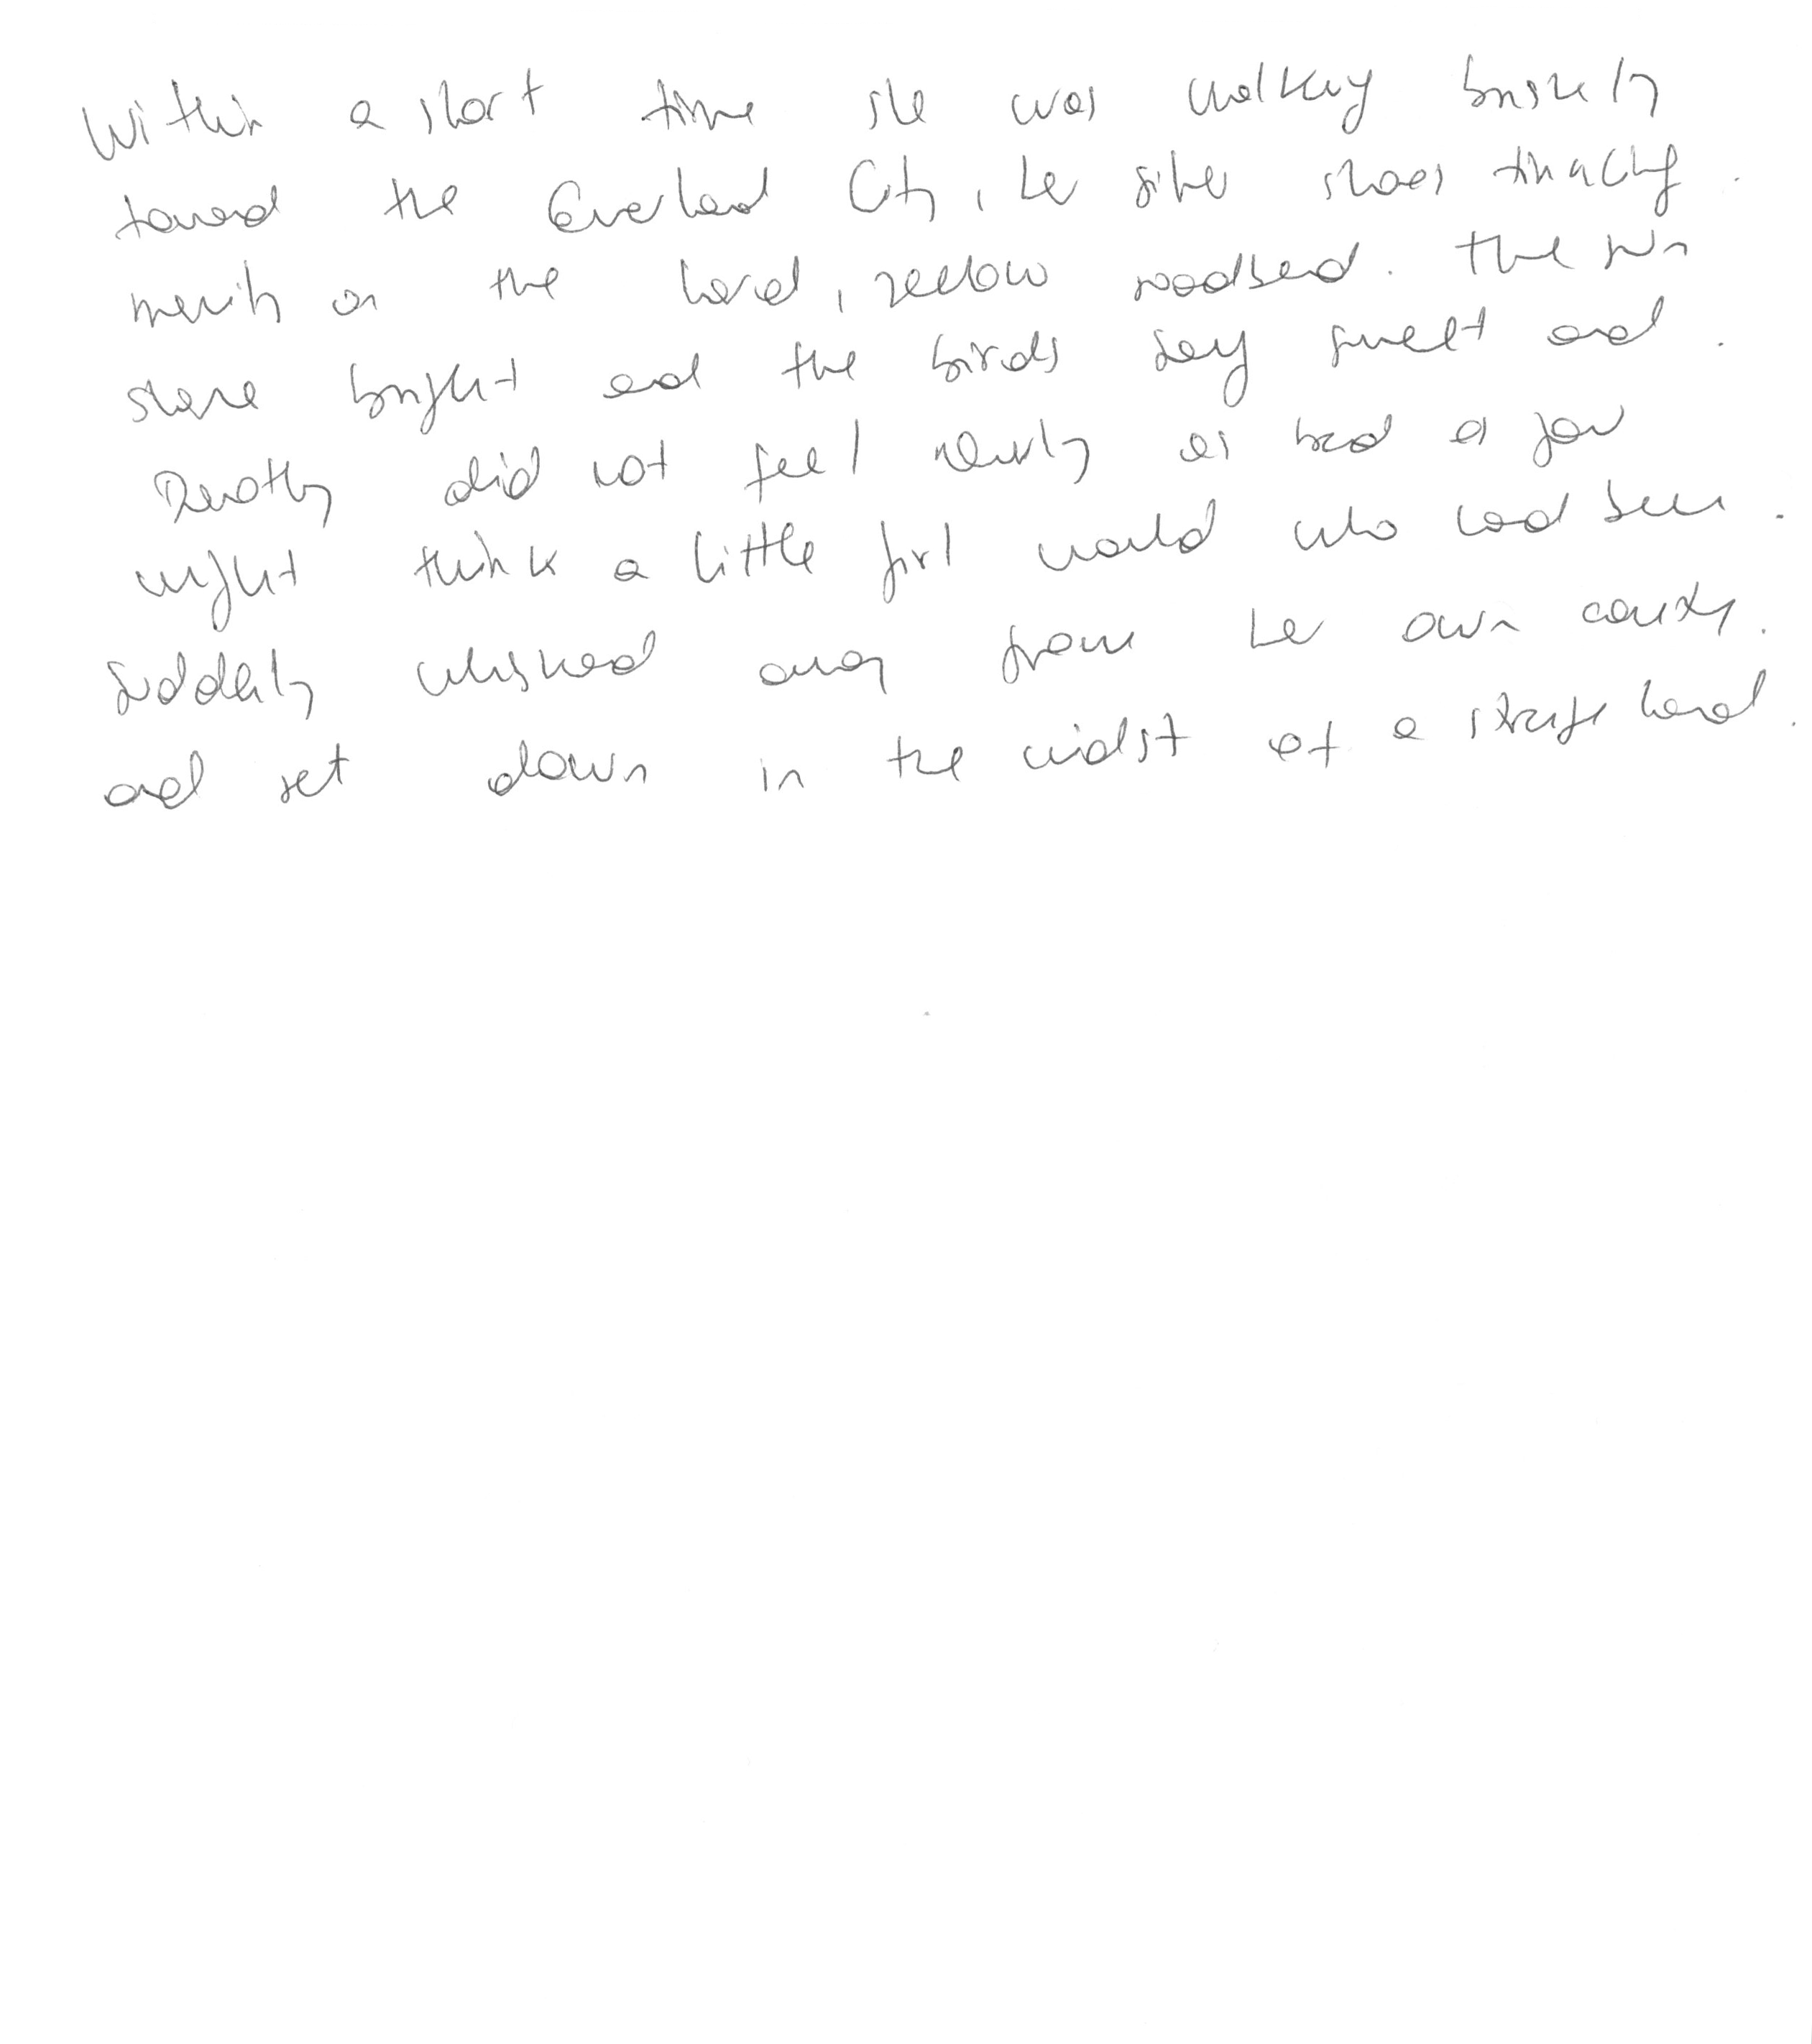 Within a short time she was walking briskly
toward the Emerald City, her silver shoes tinkling
merrily on the hard, yellow roadbed. The sun
shone bright and the birds sang sweet and
Dorothy did not feel nearly as bad as you
might think a little girl would who had been
suddenly whisked away from her own country
and set down in the midst of a strange land.